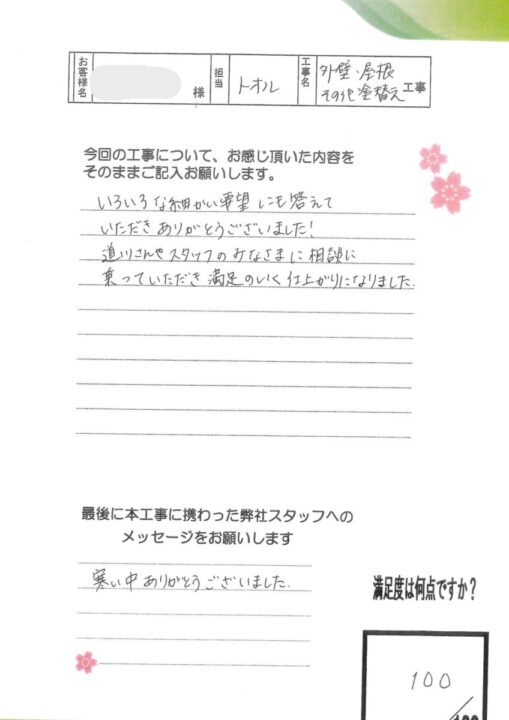 お客様名 様 担当 トオル 工事名 外壁・屋根
その他塗替え工事
今回の工事について、お感じ頂いた内容を
そのままご記入お願いします。
いろいろな細かい要望にも答えて
いただきありがとうございました!
道川さんやスタッフのみなさまに相談に
乗っていただき満足のいく仕上がりになりました.
最後に本工事に携わった弊社スタッフへの
メッセージをお願いします
寒い中ありがとうございました.
満足度は何点ですか?
100